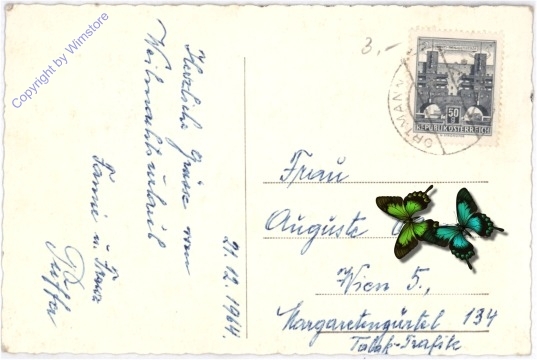 Copyright by Wimstore
Herzliche Grüsse vom
Weihnachtsurlaub
Fanni u. Franz
21.12.1964.
3.-
50
REPUBLIK ÖSTERREICH
ORTMANN
Frau
Auguste
Wien 5.,
Margaretengürtel 134
Tabak-Trafik